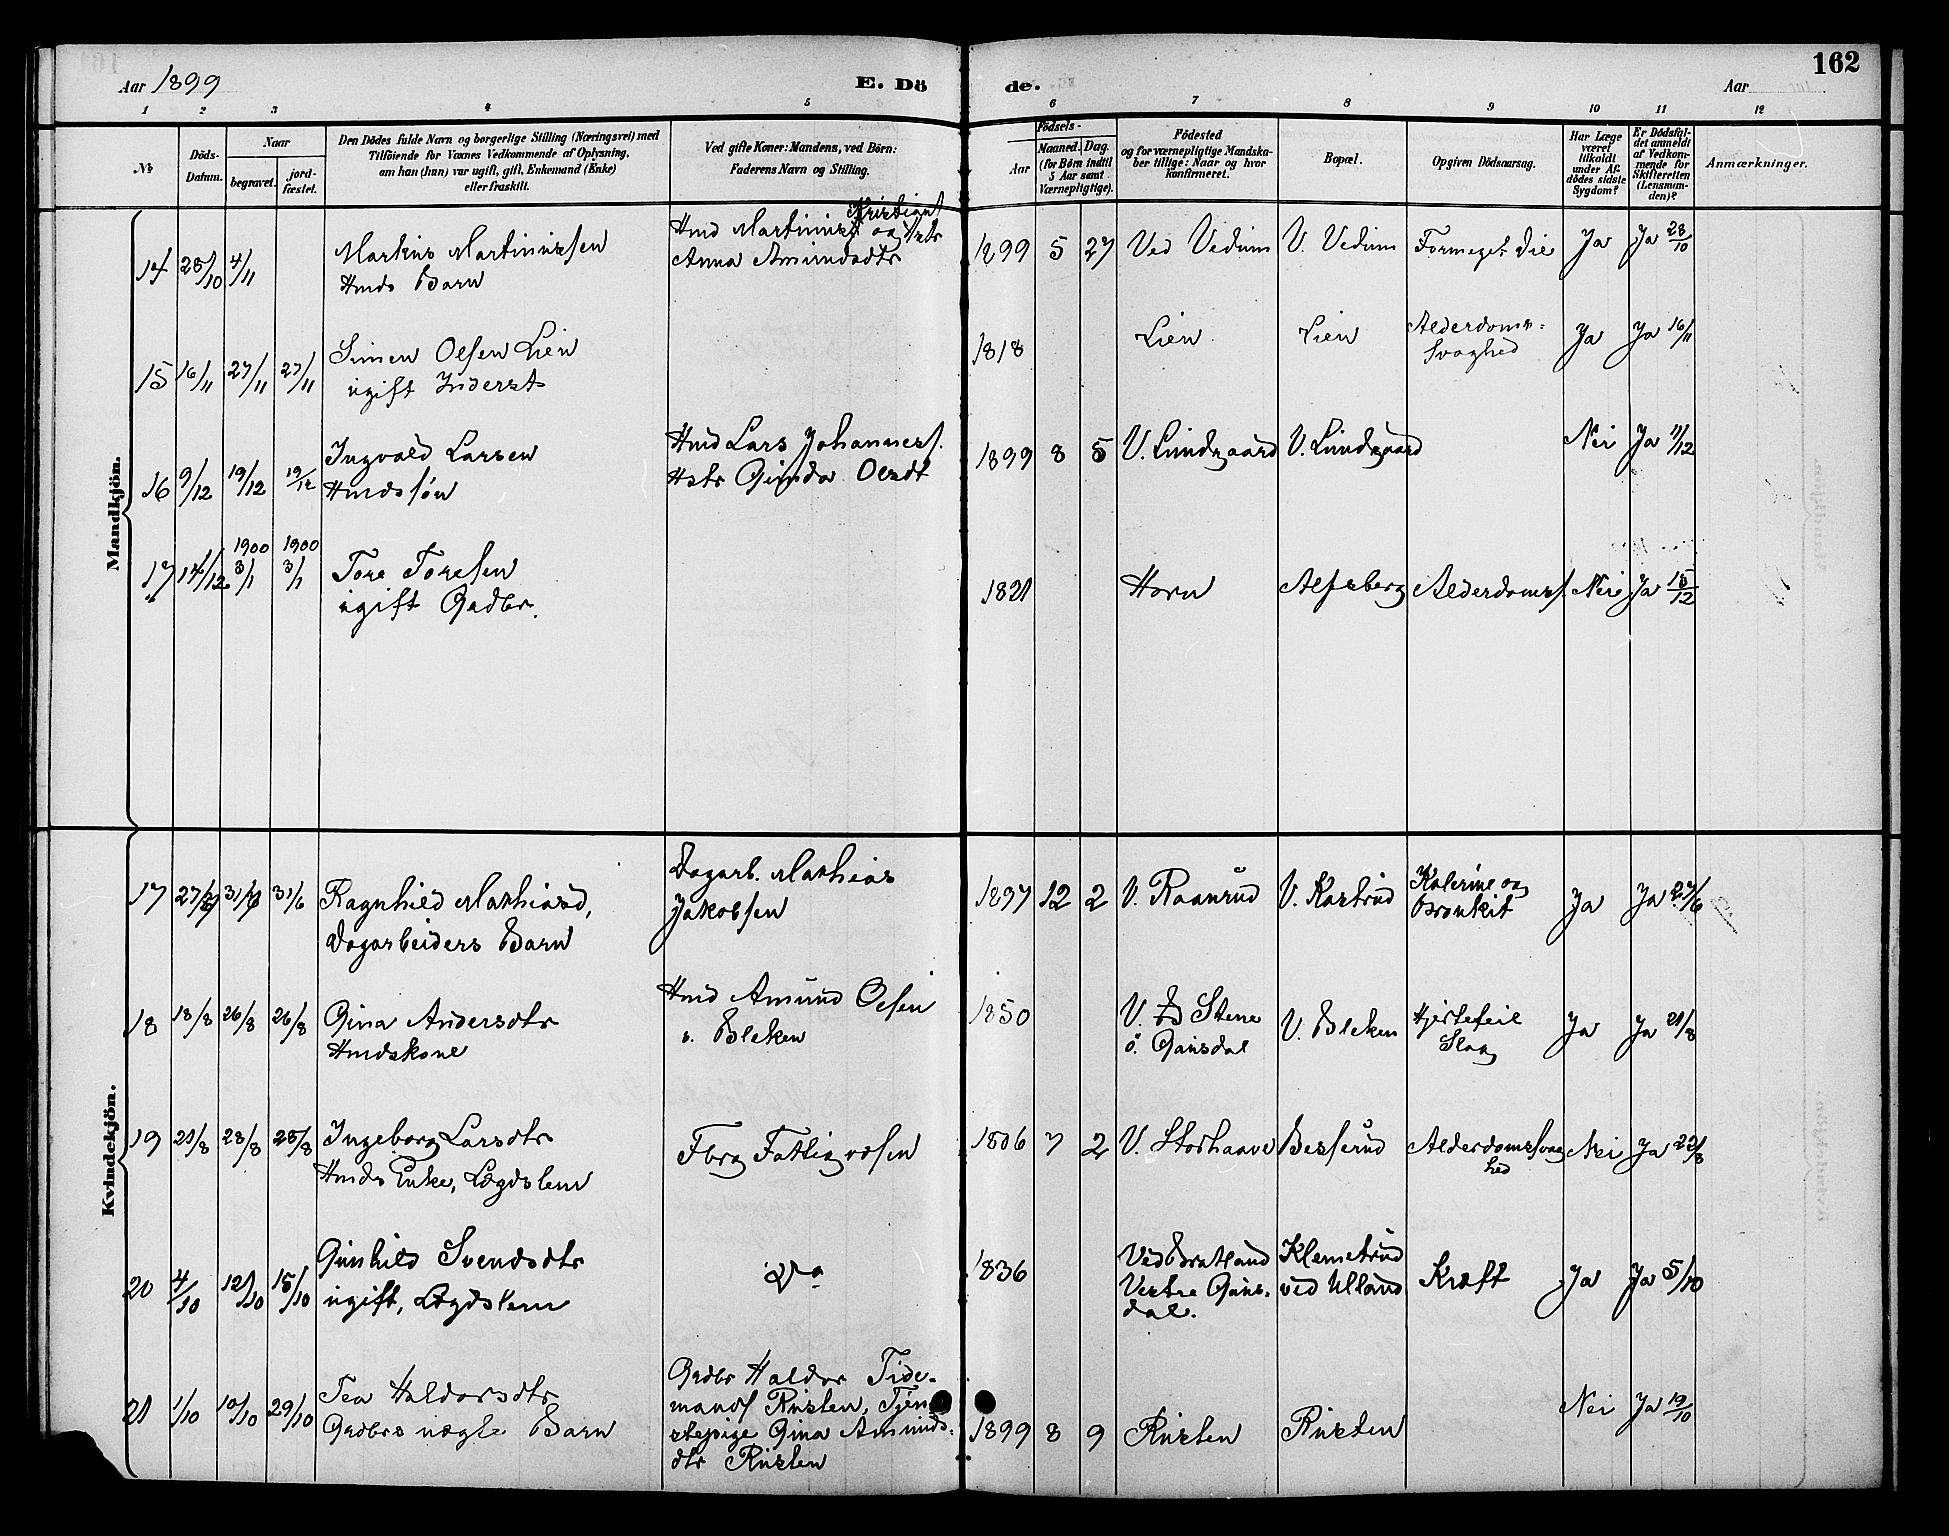 Aar 1899
E. Dö
de.
Aar
162
1 2 3 4 5 6 7 8 9 10 11 12
No
Döds-
Datum.
Naar
begravet.
jord-
fæstet.
Den Dödes fulde Navn og borgerlige Stilling (Næringsvei) med
Tilföiende for Voxnes Vedkommende af Oplysning,
om han (hun) var ugift, gift, Enkemand (Enke)
eller fraskilt.
Ved gifte Koner: Mandens, ved Börn:
Faderens Navn og Stilling.
Födsels-
Aar
Maaned. Dag.
(for Börn indtil
5 Aar samt
Værnepligtige).
Födested
og for værnepligtige Mandska-
ber tillige: Naar og hvor
konfirmeret.
Bopæl.
Opgiven Dödsaarsag.
Har Læge
været
tilkaldt
under Af-
dödes sidste
Sygdom?
Er Dödsfal-
det anmeldt
af Vedkom-
mende for
Skifteretten
(Lensman-
den)?
Anmærkninger.
Mandkjön.
14 28/10 4/11
Martin Martinussen
Hmds Barn
Kristians
Hmd Martinus og Hstr
Anna Amundsdtr
1899 5 27 Ved Vedum V. Vedum Formeget Die Ja Ja 28/10
15 16/11 27/11 27/11
Simen Olsen Lien
ugift Inderst
1818 Lien Lien Alderdoms-
svaghed Ja Ja 16/11
16 9/12 19/12 19/12
Ingvald Larsen
Hmdssøn
Hmd Lars Johannes.
Hstr Gunda Olsdt
1899 8 5 V. Lundgaard V. Lundgaard Nei Ja 11/12
17 14/12 1900 3/1 1900 3/1
Tore Toresen
ugift Gadbr.
1821 Horn Alfsberg Alderdomss. Nei Ja 15/12
Kvindekjön.
17 27/6 31/6 31/6
Ragnhild Mathiasd,
Dagarbeiders Barn
Dagarb. Mathias
Jakobsen
1897 12 2 V. Raanrud V. Kastrud Kolerine og
Bronkit Ja Ja 27/6
18 18/8 26/8 26/8
Gina Andersdtr
Hmdskone
Hmd Amund Olsen
v. Bleken
1850 V. Stene
ö. Gausdal V. Bleken Hjertefeil
Slag Ja Ja 21/8
19 21/8 28/8 28/8
Ingeborg Larsdtr
Hmds Enke, Lægdslem
Fbrg Fattigvæsen
1806 7 2 V. Storhaave Besserud Alderdomssvag
hed Nei Ja 22/8
20 4/10 12/10 15/10
Gunhild Svendsdtr
ugift, Lægdslem
Do
1836 Ved Bratland
Vestre Gaus-
dal. Klemetrud
ved Ulland Kræft Ja Ja 5/10
21 1/10 10/10 29/10
Tea Haldorsdtr
Gadbrs uægte Barn
Gadbr Haldor Tide-
mands Rusten, Tjen
stepige Gina Amunds-
dtr Rusten
1899 8 9 Rusten Rusten Nei Ja 19/10